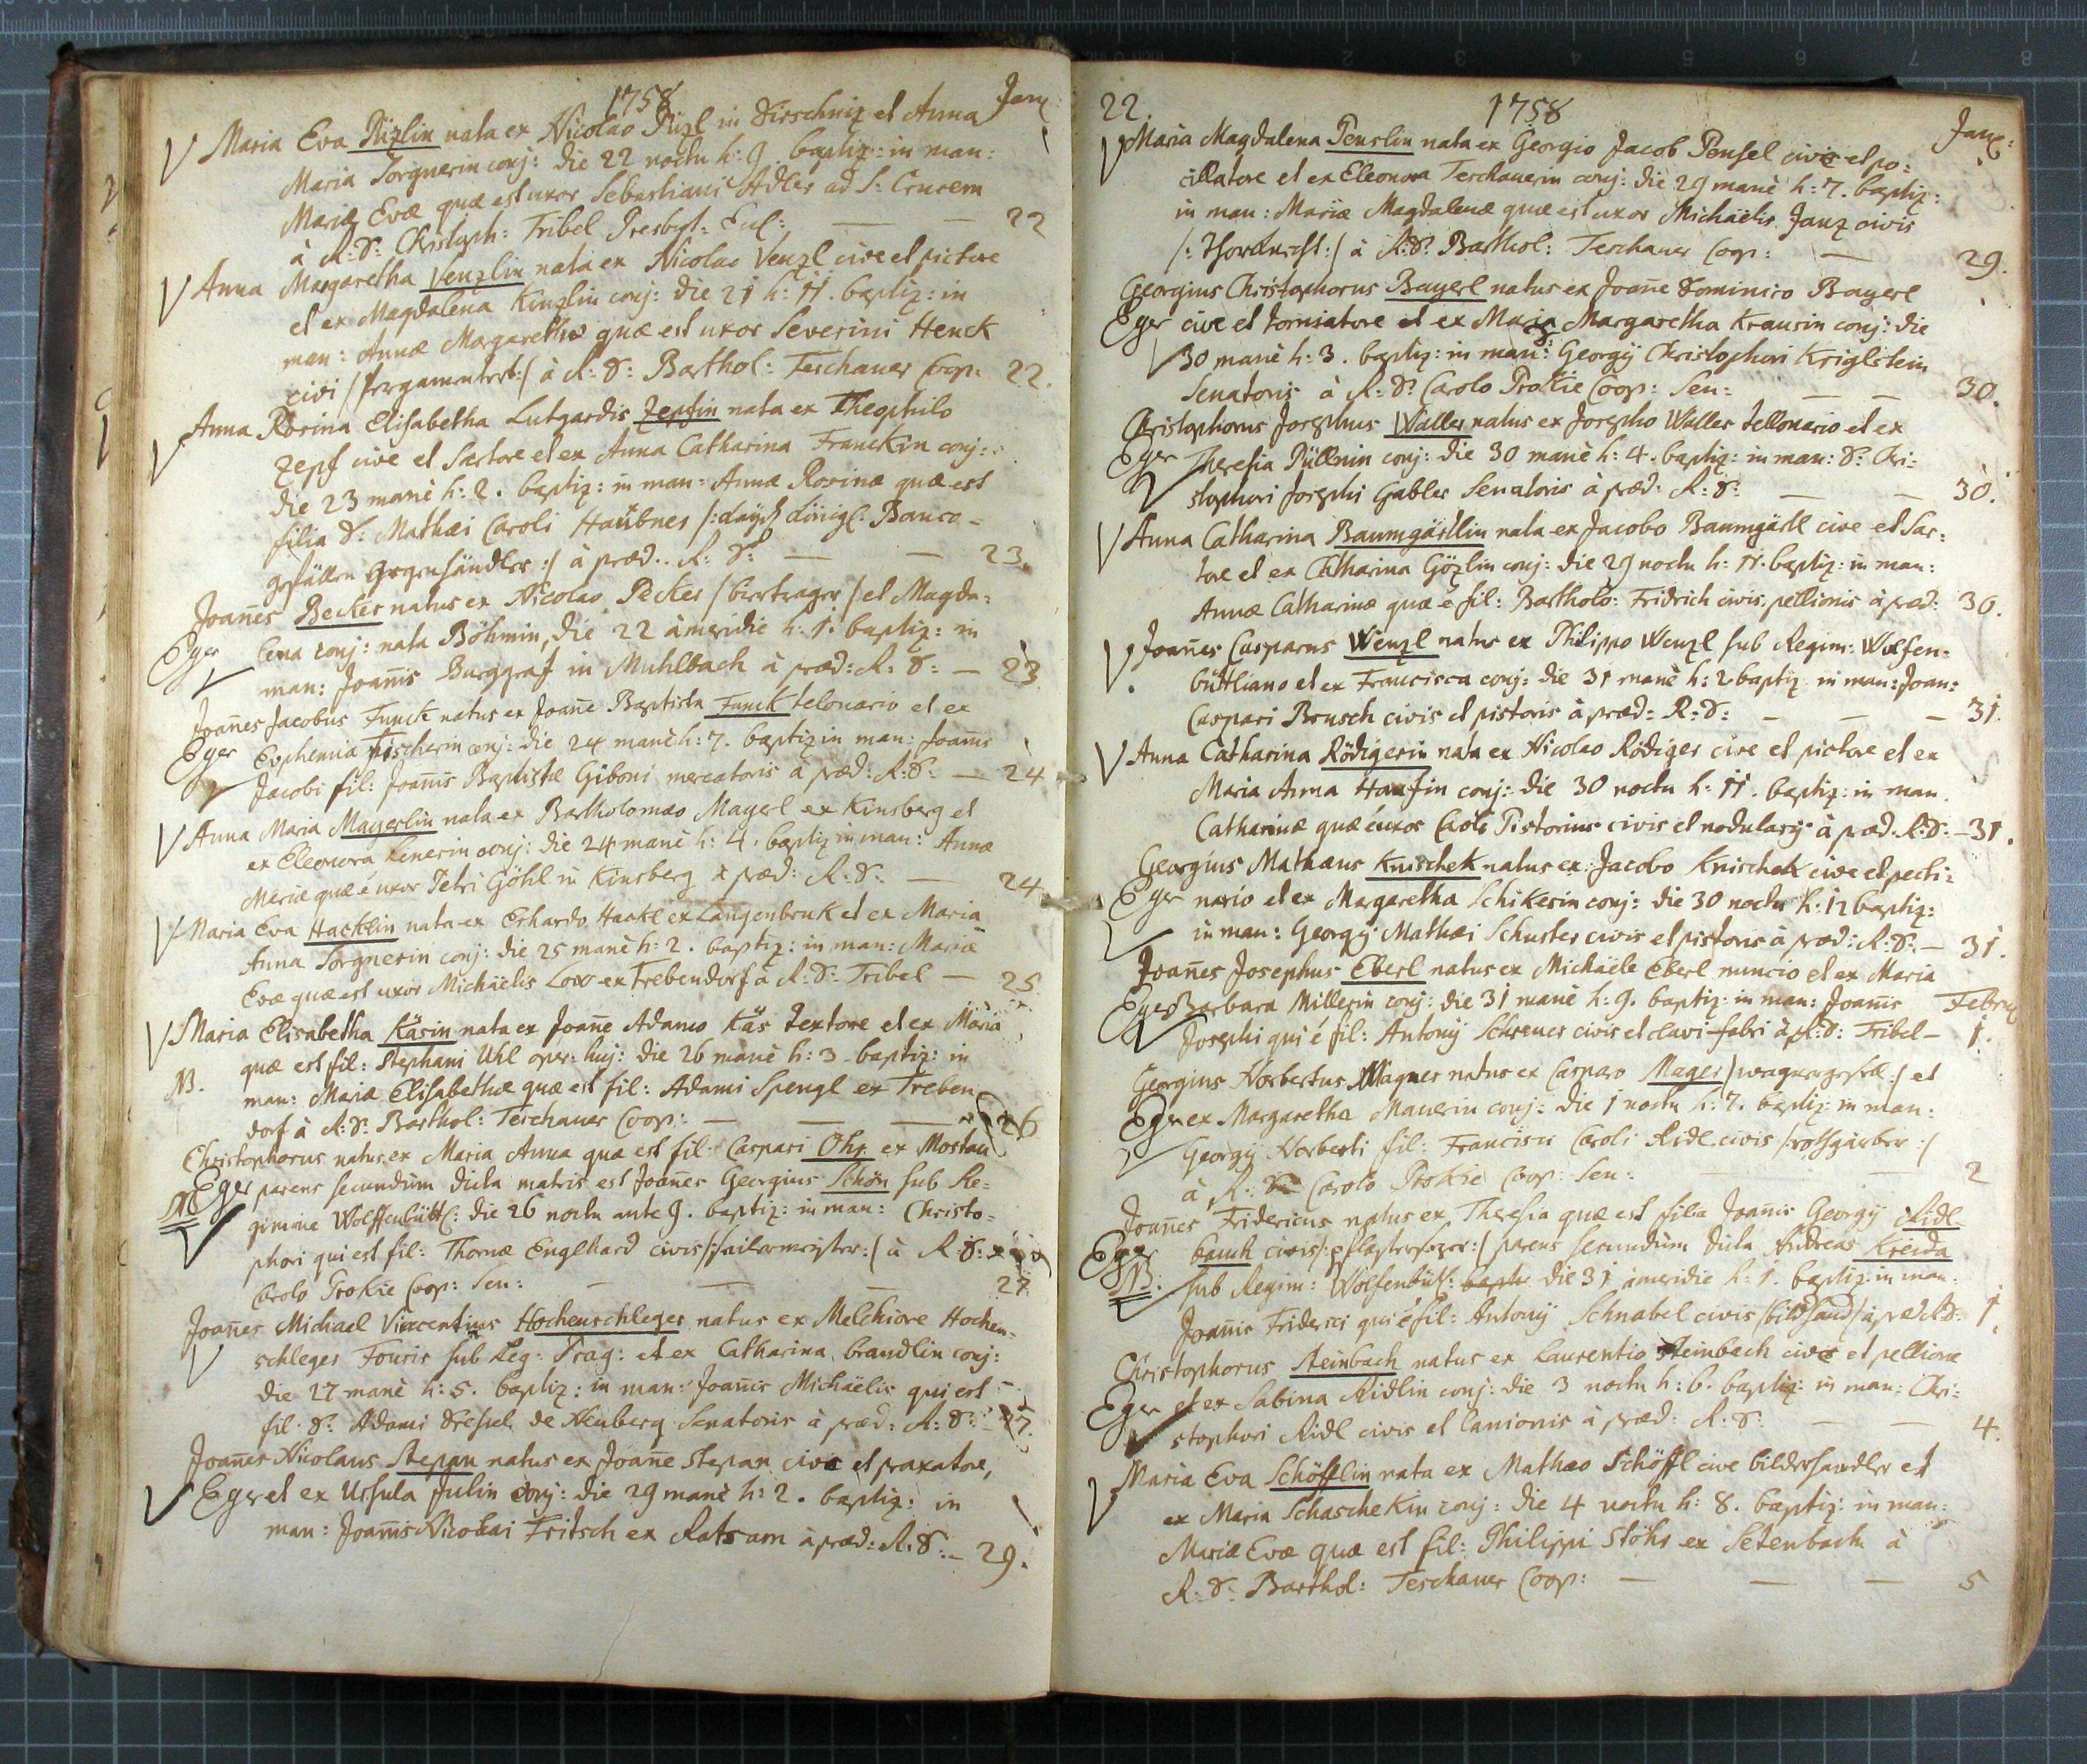 1758 Jan:
Maria Eva Pizlin nata ex Nicolao Pizl in Dirschniz et Anna
Maria Sorgnerin conj: die 22 noctu h: 9. baptiz: in man:
Mariæ Evæ quæ est uxor Sebastiani Adler ad S: Crucem
à R: D: Christoph: Tribel Presbyt: Ecl: — — 22
Anna Margaretha Venzlin nata ex Nicolao Venzl cive et pictore
et ex Magdalena Kinzlin conj: die 21 h: 11. baptiz: in
man: Annæ Margarethæ quæ est uxor Severini Henck
civi à R: D: Barthol: Teschauer Coop: 22.
Anna Rosina Elisabetha Lutgardis Zepfin nata ex Theophilo
Zepf cive et Sartore et ex Anna Catharina Franckin conj:
die 23 manè h: 2. baptiz: in man: Annæ Rosinæ quæ est
filia D: Mathæi Caroli Haübner Banco-
gefällen :/ à præd: R: D: — — 23.
Joan̄es Becker natus ex Nicolao Pecker /biertrager/ et Magda:
Eger lena conj: nata Böhmin, die 22 à meridie h: 1. baptiz: in
man: Joan̄is Burggraf in Muhlbach à præd: R: D: — 23
Joan̄es Jacobus Funck natus ex Joan̄e Baptista Funck telonario et ex
Eger Euphemia Fischerin conj: die 24 manè h: 7. baptiz in man: Joan̄is
Jacobi fil: Joan̄is Baptistæ Giboni mercatoris à præd: R: D: — 24
Anna Maria Mayerlin nata ex Bartholomæo Mayerl ex Kinsberg et
ex Eleonora Lenerin conj: die 24 manè h: 4. baptiz in man: Annæ
Mariæ quæ é uxor Petri Göhl in Kinsberg à præd: R: D: — 24
Maria Eva Hacklin nata ex Erhardo Hackl ex Langenbruk et ex Maria
Anna Sorgnerin conj: die 25 manè h: 2. baptiz: in man: Mariæ
Evæ quæ est uxor Michaëlis Low ex Trebendorf à R: D: Tribel — 25
Maria Elisabetha Käsin nata ex Joan̄e Adamo Käs textore et ex Maria
NB. quæ est fil: Stephani Uhl oper: huj: die 26 manè h: 3. baptiz: in
man: Mariæ Elisabethæ quæ est fil: Adami Spengl ex Treben
dorf à R: D: Barthol: Teschauer Coop: — — — 26
Christophorus natus ex Maria Anna quæ est fil: Caspari Ohr ex Mostau
Eger parens secundùm dicta matris est Joan̄es Georgius Schön sub Re:
NB gimine Wolffenbütt: die 26 noctu ante 9. baptiz: in man: Christo:
phori qui est fil: Thomæ Englhard civis /:sailermeister:/ à R: D:
Carolo Prokie Coop: Sen: — — — 27
Joan̄es Michael Vincentius Hochenschleger natus ex Melchiore Hochen:
schleger Fourir sub Leg: Prag: et ex Catharina brandlin conj:
die 27 manè h: 5. baptiz: in man: Joan̄is Michaëlis qui est
fil: D: Adami Dressel de Neuberg Senatoris à præd: R: D: — 27.
Joan̄es Nicolaus Stepan natus ex Joan̄e Stepan cive et praxatore,
Eger et ex Ursula Julin conj: die 29 manè h: 2. baptiz: in
man: Joan̄is Nicolai Fritsch ex Ratsam à præd: R: D: — 29.
22. 1758 Jan:
Maria Magdalena Penslin nata ex Georgio Jacob Pensel cive et po:
cillatore et ex Eleonora Teschauerin conj: die 29 manè h: 7. baptiz:
in man: Mariæ Magdalenæ quæ est uxor Michaëlis Janz civis
à R: D: Barthol: Teschauer Coop: — 29.
Georgius Christophorus Bayerl natus ex Joan̄e Dominico Bayerl
Eger cive et torniatore et ex Maria Margaretha Krausin conj: die
30 manè h: 3. baptiz: in man: Georgÿ Christophori Kriglstein
Senatoris à R: D: Carolo Prokie Coop: Sen: — — 30.
Christophorus Josephus Waller natus ex Josepho Waller tellonario et ex
Eger Theresia Püllnin conj: die 30 manè h: 4. baptiz: in man: D: Chri:
stophori Josephi Gabler Senatoris à præd: R: D: — — 30.
Anna Catharina Baumgärtlin nata ex Jacobo Baumgärtl cive et Sar:
tore et ex Catharina Gözlin conj: die 29 noctu h: 11. baptiz: in man:
Annæ Catharinæ quæ é fil: Bartholo: Fridrich civis pellionis à præd: 30.
Joan̄es Casparus Wenzl natus ex Philippo Wenzl sub Regim: Wolfen:
büttliano et ex Francisca conj: die 31 manè h: 2 baptiz: in man: Joan:
Caspari Brusch civis et pistoris à præd: R: D: — — — 31.
Anna Catharina Rödigerin nata ex Nicolao Rödiger cive et pictore et ex
Maria Anna Hanfin conj: die 30 noctu h: 11. baptiz: in man.
Catharinæ quæ é uxor Caroli Pistorius civis et nodularÿ à præd: R: D: — 31.
Georgius Mathæus Knischek natus ex Jacobo Knischek cive et pecti:
Eger nario et ex Margaretha Schikerin conj: die 30 noctu h: 12 baptiz:
in man: Georgÿ Mathæi Schuster civis et pistoris à præd: R: D: — 31.
Joan̄es Josephus Eberl natus ex Michaële Eberl nuncio et ex Maria
Eger Barbara Millerin conj: die 31 manè h: 9. baptiz: in man: Joan̄is Febru
Josephi qui é fil: Antonÿ Schreuer civis et clavi-fabri à R: D: Tribel — 1.
Georgius Norbertus Mager natus ex Casparo Mager /wagnergesell:/ et
Eger ex Margaretha Mauerin conj: die 1 noctu h: 7. baptiz: in man:
Georgÿ Norberti fil: Francisci Caroli Ridl civis /:rothgärber:/
à R: D: Carolo Prokie Coop: Sen: — — 2
Joan̄es Fridericus natus ex Theresia quæ est filia Joan̄is Georgÿ Ridl
Eger bauch civis /:pflastersezer:/ parens secundùm dicta Andreas Kreida
NB. sub Regim: Wolfenbütt: die 31 à meridie h: 1. baptiz: in man:
Joan̄is Friderici qui é fil: Antonÿ Schnabel civis à præd: R: D: 1.
Christophorus Steinbach natus ex Laurentio Steinbach cive et pellione
Eger et ex Sabina Ridlin conj: die 3 noctu h: 6. baptiz: in man: Chri:
stophori Ridl civis et lanionis à præd: R: D: — — 4.
Maria Eva Schöfflin nata ex Mathæo Schöffl cive bilderhandler et
ex Maria Schaschekin conj: die 4 noctu h: 8. baptiz: in man:
Mariæ Evæ quæ est fil: Philippi Stöhr ex Setenbach à
R: D: Barthol: Teschauer Coop: — — — 5